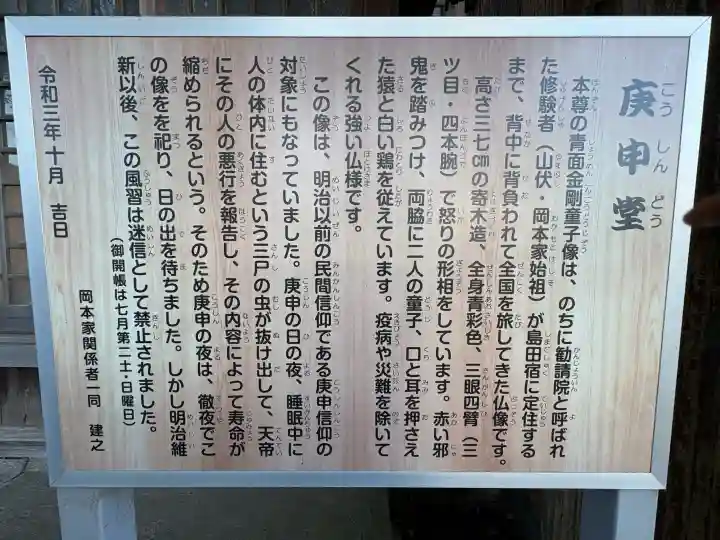 庚申堂
こうしんどう
本尊の青面金剛童子像は、のちに勧請院と呼ばれ
た修験者（山伏・岡本家始祖）が島田宿に定住する
まで、背中に背負われて全国を旅してきた仏像です。
高さ三七㎝の寄木造、全身青彩色、三眼四臂（三
ツ目・四本腕）で怒りの形相をしています。赤い邪
鬼を踏みつけ、両脇に二人の童子、口と耳を押さえ
た猿と白い鶏を従えています。疫病や災難を除いて
くれる強い仏様です。
この像は、明治以前の民間信仰である庚申信仰の
対象にもなっていました。庚申の日の夜、睡眠中に
人の体内に住むという三尸の虫が抜け出して、天帝
にその人の悪行を報告し、その内容によって寿命が
縮められるという。そのため庚申の夜は、徹夜でこ
の像をを祀り、日の出を待ちました。しかし明治維
新以後、この風習は迷信として禁止されました。
（御開帳は七月第二土・日曜日）
令和三年十月　吉日
岡本家関係者一同　建之